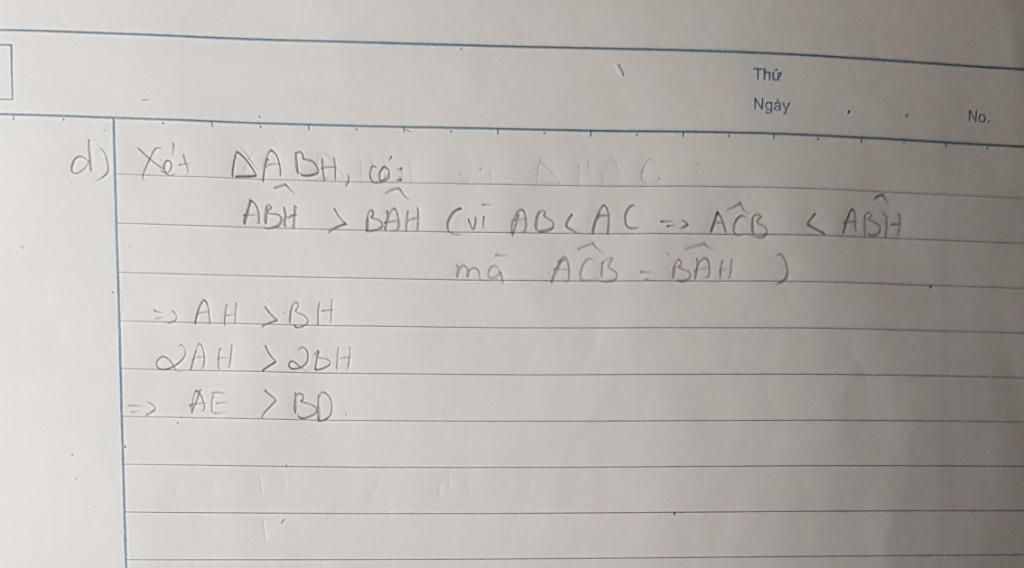 Thứ
Ngày
No.
d) Xét ΔABH, có:
ABĤ > BÂH (vì AB < AC => AĈB < AB̂H
mà AĈB = BÂH )
=> AH > BH
2AH > 2BH
=> AE > BD.